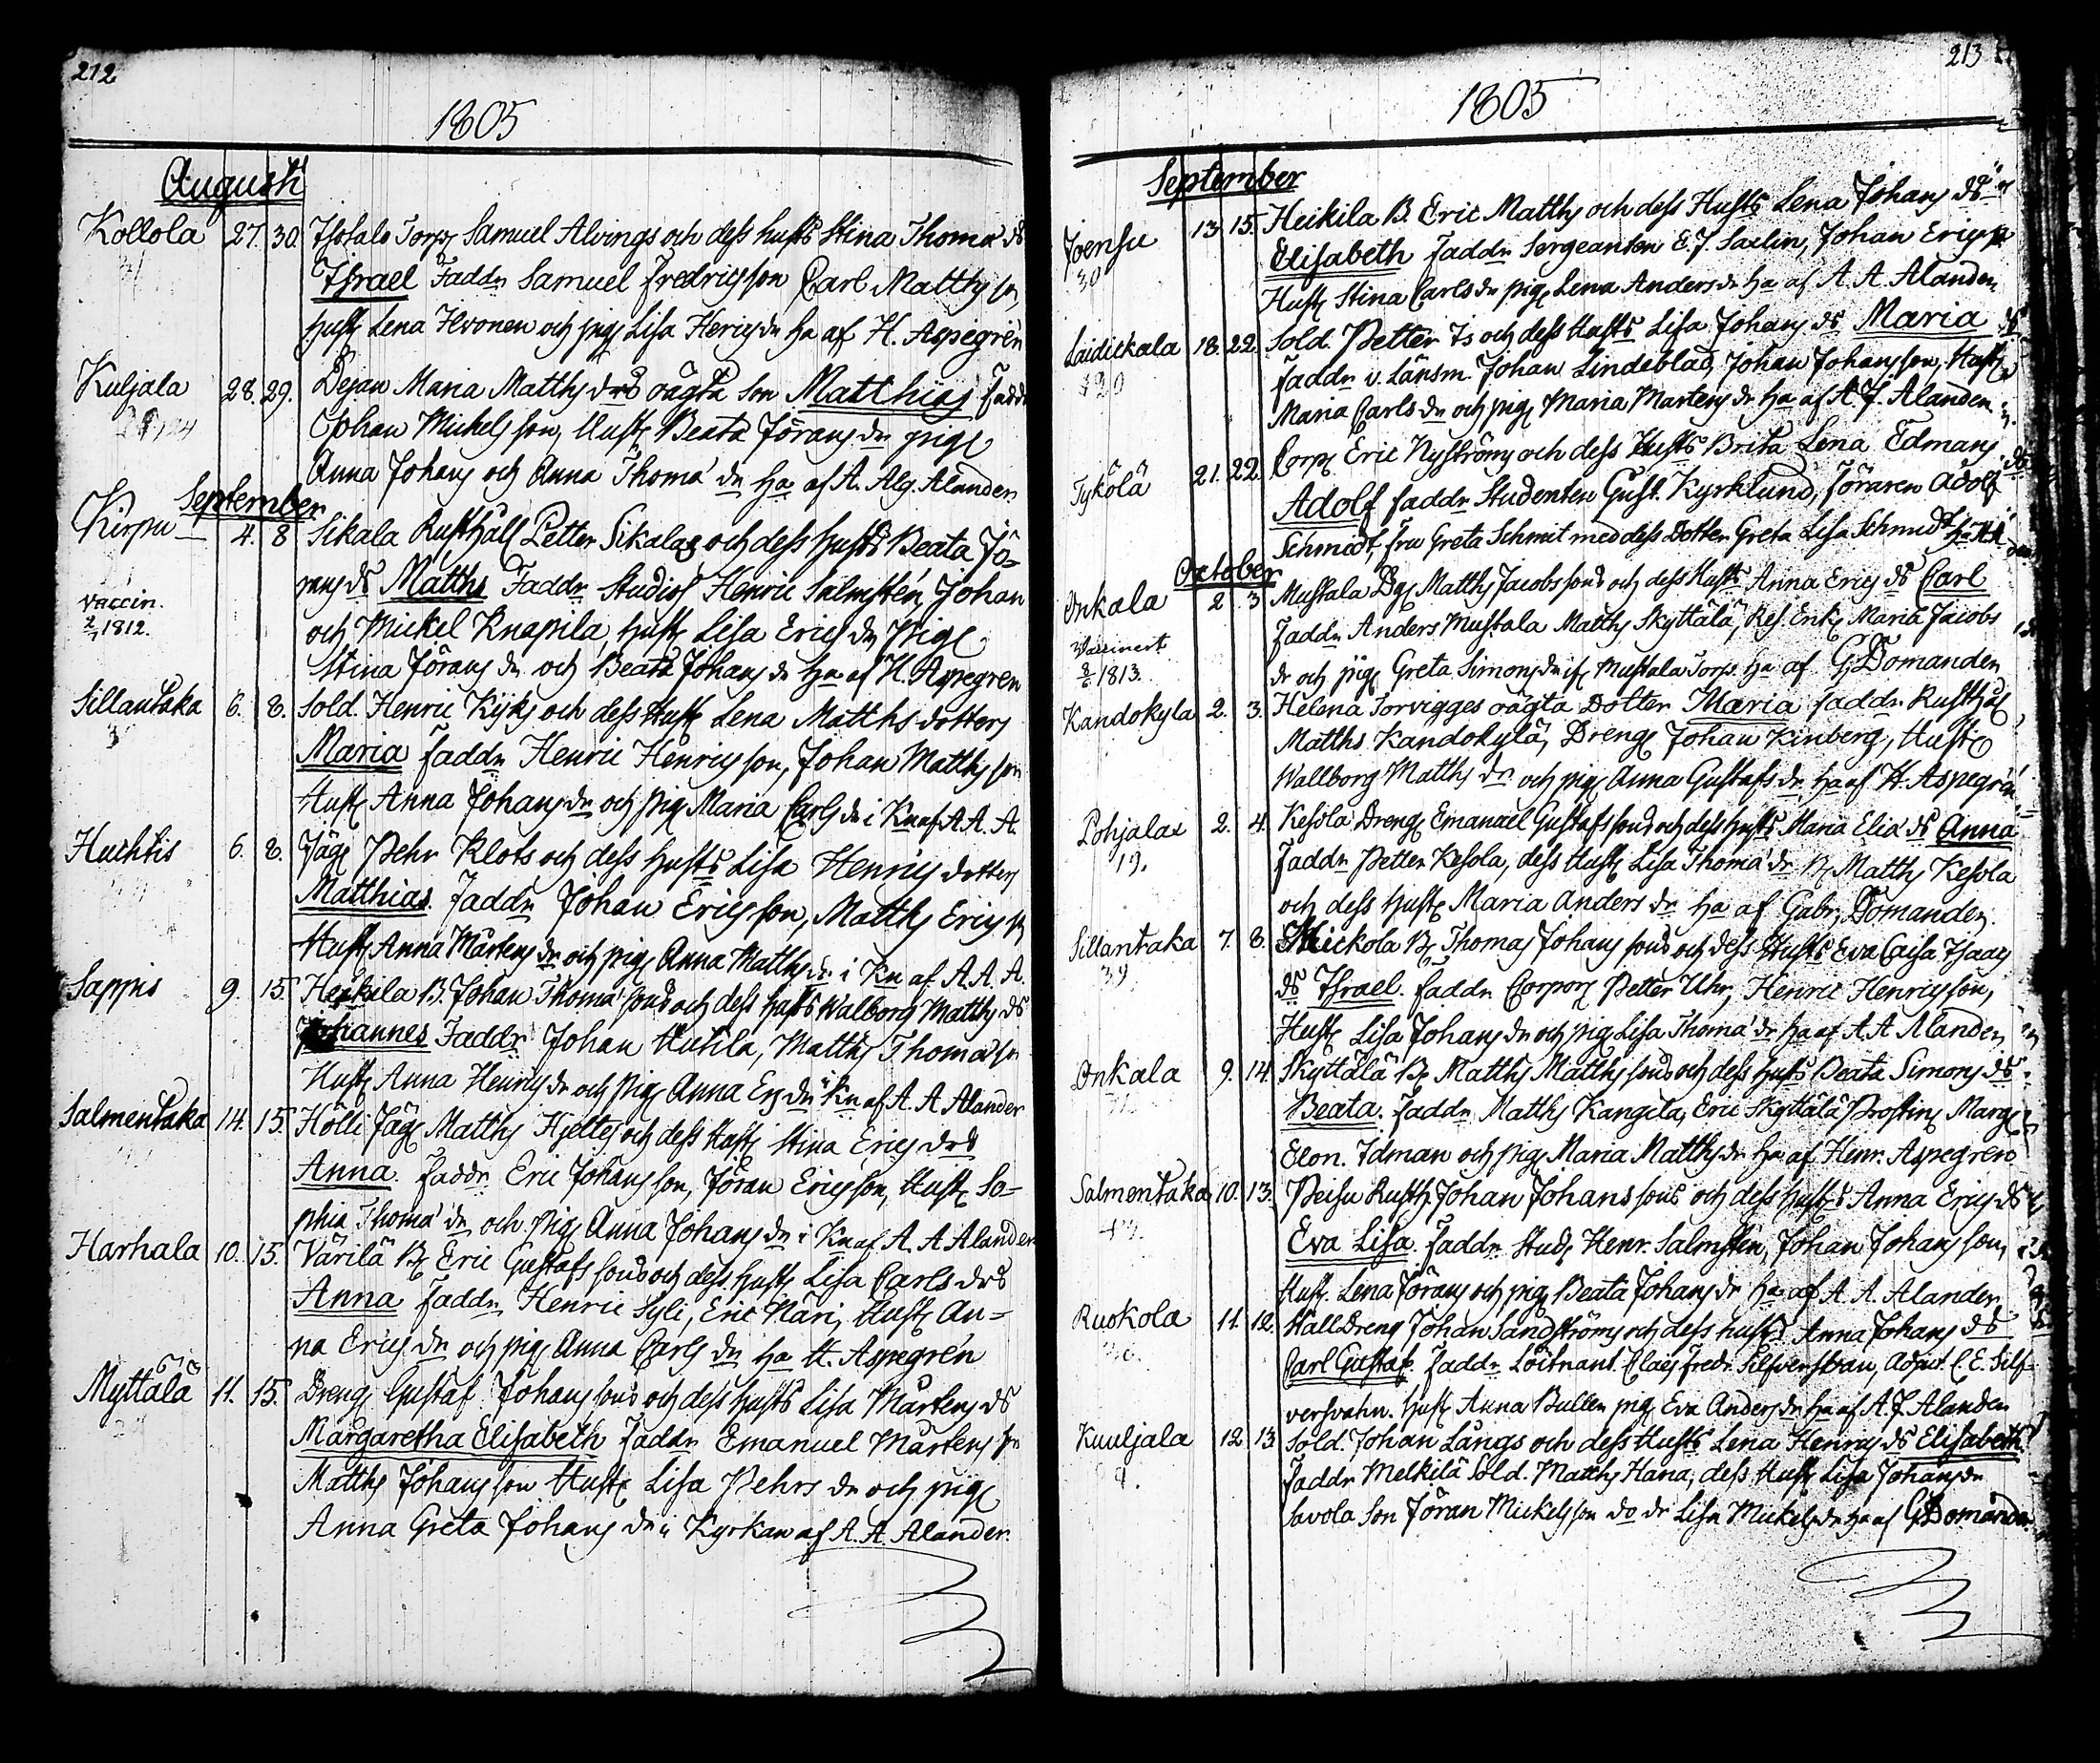 212
1805
Augusti
Kollola 27. 30. Isotalo Torp. Samuel Alvings och dess hust͞s Stina Thomæ ds
Israel Faddr Samuel Fredricsson Carl Matths son
Hust. Lena Hvonen och pig. Lisa Henricsdr ha af H. Aspegrén
Kuljala 28. 29. Dejan Maria Matths drs oägta son Matthias Faddr
Johan Mickelsson, Hust. Beata Jöransdr pig.
Anna Johans och Anna Thomæ dr ha af A. Alg. Alander
September
Kirpu 4. 8 Sikala Rusthåll Petter Sikalas och dess Hust͞s Beata Jö-
rans ds Matths Faddr Studios. Henric Salmstén, Johan
vaccin.
1812.
och Mickel Knapila, hust. Lisa Erics dr Pig.
Stina Jörans dr och Beata Johans dr ha af H. Aspegren
Sillantaka 6. 8. Sold. Henric Kyks och dess Hust. Lena Matths dotters
Maria Faddr Henric Henricsson, Johan Matths son
Hust. Anna Johansdr och pig. Maria Carls dr i Kn af A A. A.
Huchtis 6. 8. Jäg. Pehr Klots och dess hust͞s Lisa Henrics dotters
Matthias. Faddr Johan Ericsson, Matths Erics sn
Hust. Anna Mårtens dr och pig. Anna Matths dr i Kn af A A. A.
Sappis 9. 15. Heikila B. Johan Thomæ sons och dess hust͞s Walborg Matths ds
Johannes Faddr Johan Uutila, Matths Thomæ sn
Hust. Anna Henrics dr och pig. Anna Er. dr i Kn af A A Alander
Salmentaka 14. 15. Hölli Jäg. Matths Hjeltes och dess Hust. Stina Erics drs
Anna. Faddr. Eric Johansson, Jöran Ericsson, Hust. So-
phia Thomæ dr och pig. Anna Johans dr i Kn af A. A Alander
Harhala 10. 15. Värilä B. Eric Gustafs sons och dess hust. Lisa Carls drs
Anna Faddr Henric Syli, Eric Näri, Hust. An-
na Erics dr och pig. Anna Carls dr ha H. Aspegrén
Myttälä 11. 15. Dreng Gustaf Johans sons och dess hust͞s Lisa Mårtens ds
Margaretha Elisabeth Faddr Emanuel Mårtens sn
Matths Johansson Hust. Lisa Pehrs dr och pig.
Anna Greta Johans dr i Kyrkan af A. A. Alander.
213
1805
September
Joensu 13. 15. Heikila B. Eric Matths och dess Hust͞s Lena Johans ds
30
Elisabeth Faddr Sergeanten E. J. Saxlin, Johan Erics sn
Hust. Stina Carls dr pig. Lena Anders dr ha af A. A. Alander
Laidickala 18. 22. Sold. Petter Is och dess Hust͞s Lisa Johans ds Maria
Faddr v. Länsm. Johan Lindeblad, Johan Johansson, Hust.
Maria Carls dr och pig. Maria Martens dr ha af A. J. Alander
Tykölä 21. 22. Corp. Eric Nyströms och dess Hust͞s Brita Lena Edmans ds
Adolf faddr Studenten Gust. Kyrklund, Föraren Adolf
Schmidt, fru Greta Schmit med dess Dotter Greta Lisa Schmidt ha
October
Onkala 2 3 Mustala Dg. Matths Jacobs sons och dess Hust͞s Anna Erics ds Carl
Vaccinert
1813.
Faddr Anders Mustala Matths Skyttälä, Res. Enk. Maria Jacobs
dr och pig. Greta Simons dr if. Mustala Torp. ha af G Domander
Kandokyla 2. 3. Helena Torvigges oägta Dotter Maria faddr Rusthål.
Matths Kandokylä, Dreng. Johan Kinberg, Hust.
Wallborg Matths dr och pig. Anna Gustafs dr ha af H. Aspegrén
Pohjalax 2. 4. Kesola Dreng. Emanuel Gustafs sons och dess hust͞s Maria Eliæ ds Anna
19.
Faddr Petter Kesola, dess Hust. Lisa Thomæ dr B. Matths Kesola
och dess hust. Maria Anders dr ha af Gabr. Domander
Sillantaka 7. 8. Mickola B. Thomas Johans sons och dess Hust͞s Eva Caisa Isaacs
39
ds Israel. faddr Corpor. Petter Uhr, Henric Henricsson,
Hust. Lisa Johans dr och pig. Lisa Thomæ dr ha af A A Alander
Onkala 9. 14. Skyttälä B. Matths Matths sons och dess hust͞s Beata Simons ds
Beata. Faddr Matths Kangila, Eric Skyttälä Prostinn. Marg.
Elon. Idman och pig. Maria Matths dr ha af Henr. Aspegren
Salmentaka 10. 13. Peisu Rusth. Johan Johans sons och dess hust͞s Anna Erics ds
Eva Lisa. faddr Stud. Henr. Salmstén, Johan Johansson,
Hust. Lena Jörans och pig. Beata Johans dr ha af A A. Alander
Ruokola 11. 12. Stalldreng Johan Sandströms och dess hust͞s Anna Johans ds
Carl Gustaf. Faddr Löitnant. Claes Fredr. Silfversvan, Adjut. C. E. Silf-
versvahn. Hust. Anna Bullen pig. Eva Anders dr ha af A. J. Alander
Kuuljala 12 13 Sold. Johan Långs och dess Hust͞s Lena Henrics ds Elisabeth
Faddr Melkilä Sold. Matths Hana, dess Hust. Lisa Johans dr
Savola Son Jöran Mickelsson do dr Lisa Mickels dr ha af G Domander